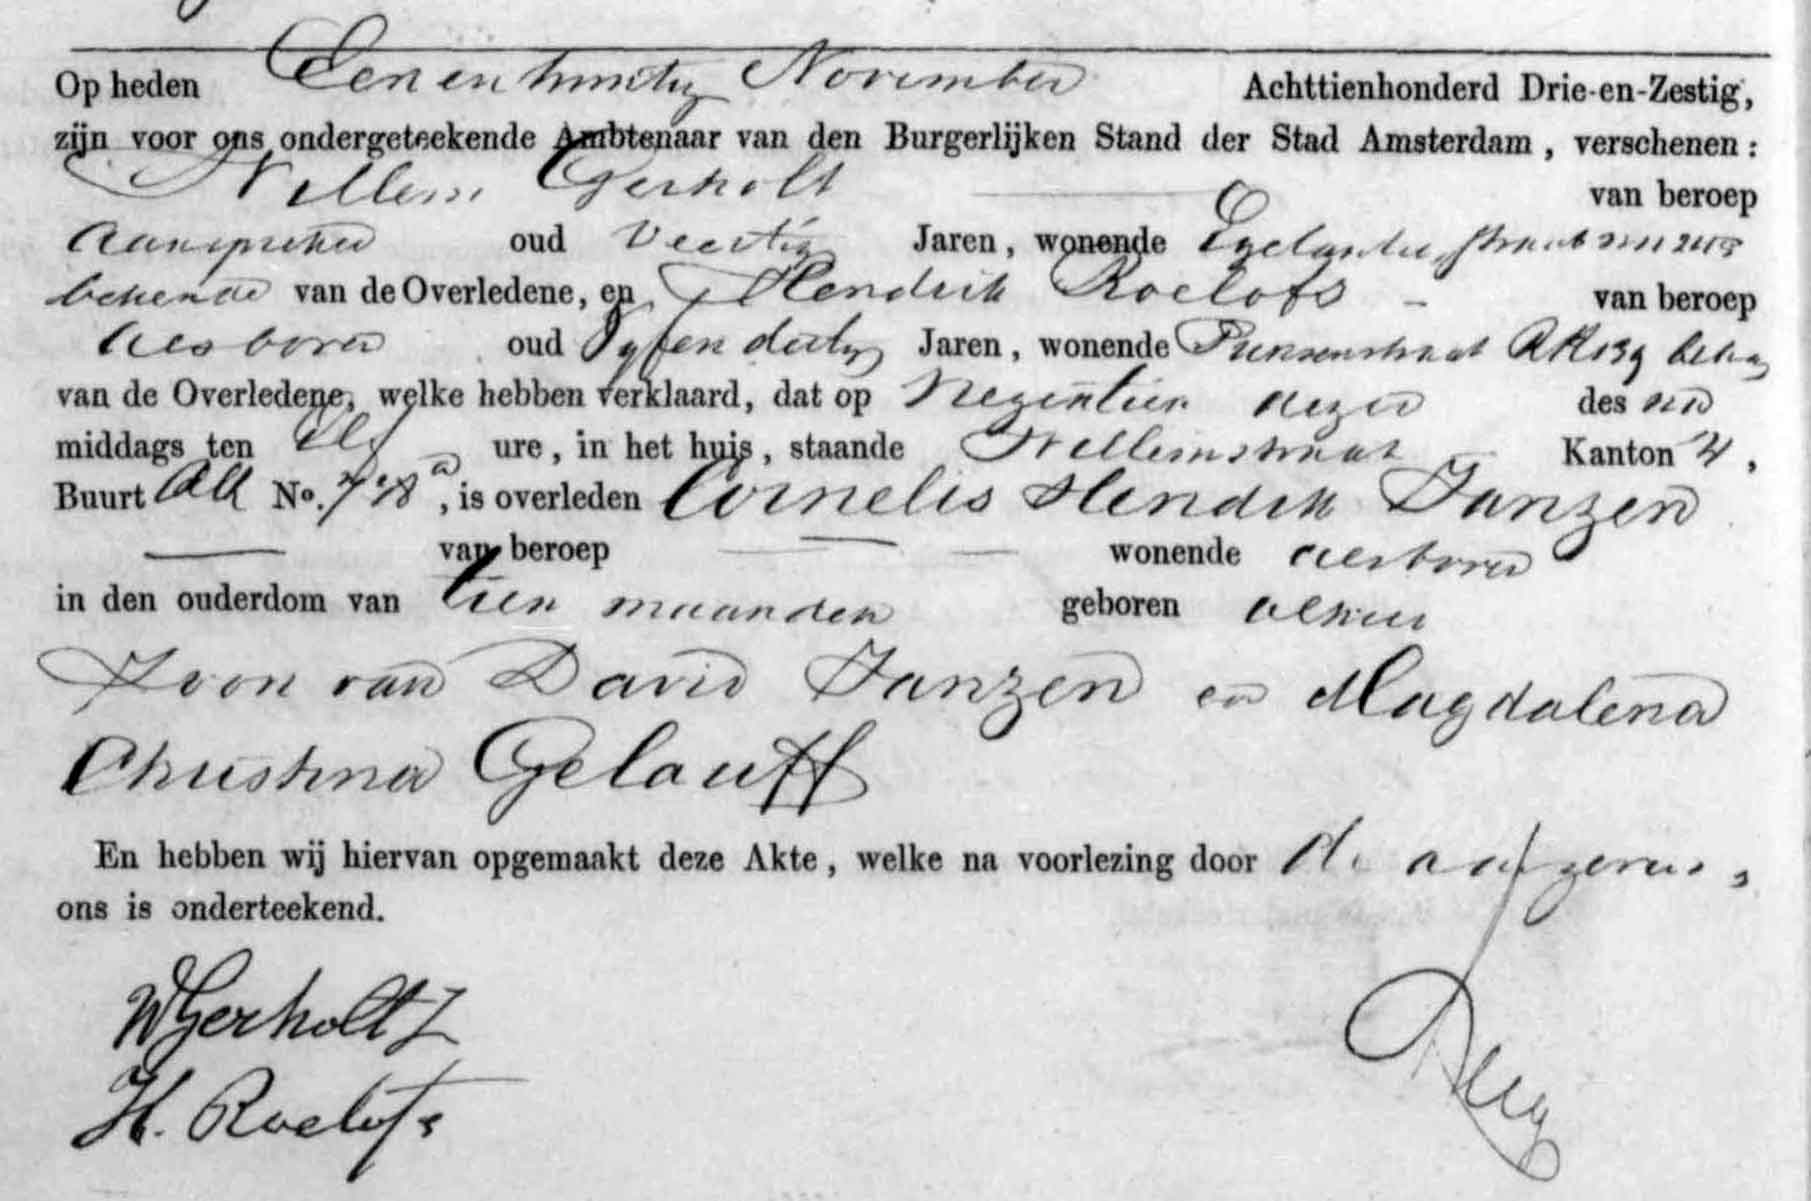 Op heden Een en twintig November Achttienhonderd Drie-en-Zestig,
zijn voor ons ondergeteekende Ambtenaar van den Burgerlijken Stand der Stad Amsterdam, verschenen:
Willem Gerholt van beroep
Aanspreker oud Veertig Jaren, wonende Egelantiersstraat
bekende van de Overledene, en Hendrik Roelofs van beroep
als boven oud Vyf en dertig Jaren, wonende Prinsenstraat
van de Overledene, welke hebben verklaard, dat op Negentien dezer des
middags ten Elf ure, in het huis, staande Willemstraat Kanton 4,
Buurt No. , is overleden Cornelis Hendrik Janzen
van beroep wonende als boven
in den ouderdom van tien maanden geboren alhier
Zoon van David Janzen en Magdalena
Christina Gelauff
En hebben wij hiervan opgemaakt deze Akte, welke na voorlezing door de
ons is onderteekend.
WGerholtz
H. Roelofs